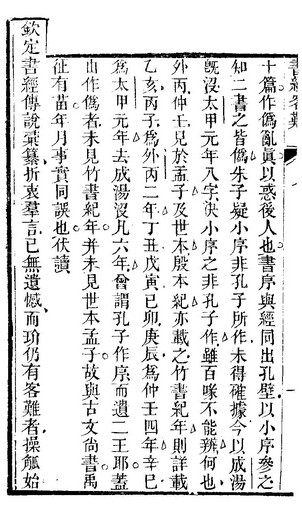 書經客難
十篇作僞亂眞以惑後人也書序與經同出孔壁以小序參之
知二書之皆僞朱子疑小序非孔子所作未得確據今以成湯
旣沒太甲元年八字決小序之非孔子作雖百喙不能辨何也
外丙仲壬見於孟子及世本殷本紀亦載之竹書紀年則詳載
乙亥丙子爲外丙二年丁丑戊寅己卯庚辰爲仲壬四年辛巳
爲太甲元年去成湯沒凡六年曾謂孔子作序而遺二王耶蓋
由作僞者未見竹書紀年并未見世本孟子故與古文尚書禹
征有苗年月事實同誤也伏讀
欽定書經傳說彙纂折衷羣言已無遺憾而玠仍有客難者操觚始